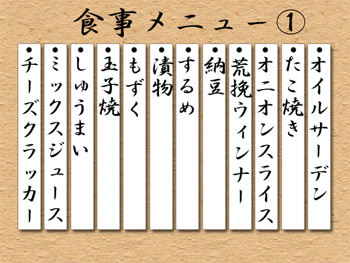 食事メニュー①
オイルサーデン
たこ焼き
オニオンスライス
荒挽ウィンナー
納豆
するめ
漬物
もずく
玉子焼
しゅうまい
ミックスジュース
チーズクラッカー